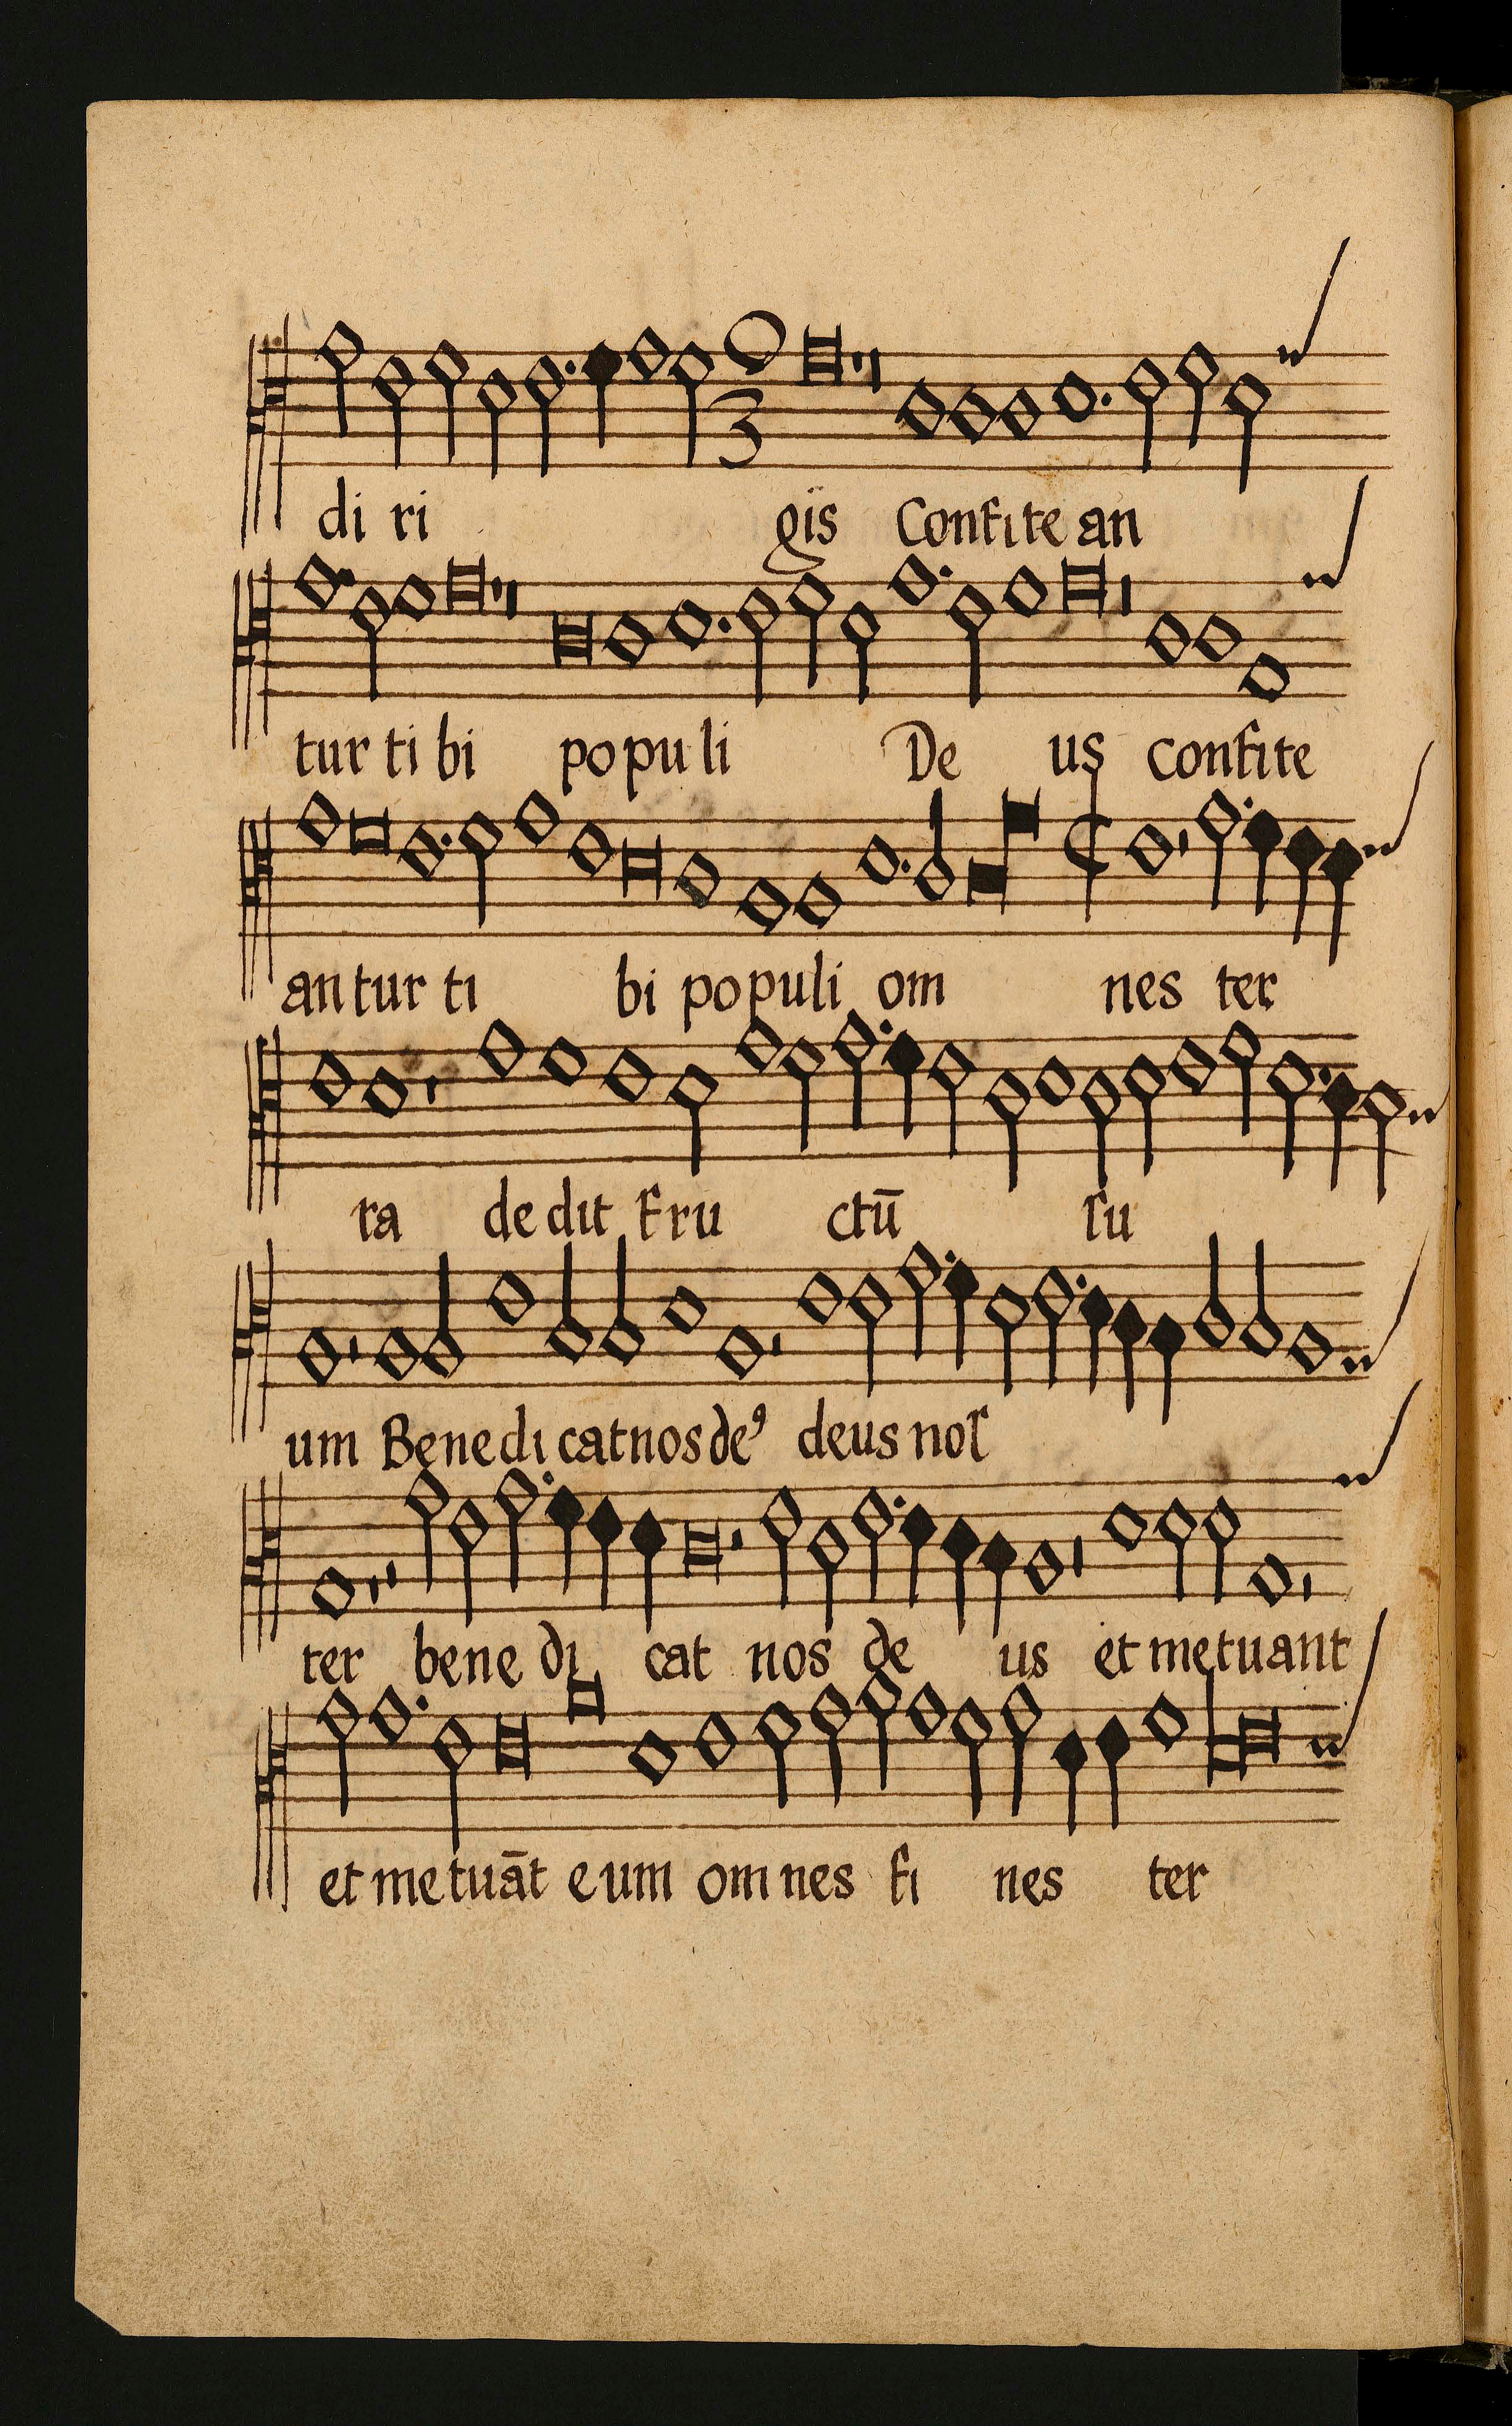 di ri gis Confite an
tur ti bi po pu li De us confite
an tur ti bi populi om nes ter
ra de dit fru ctū su
um Benedi cat nos deꝰ deus nos
ter bene di cat nos de us et metuant
et metuāt eum om nes fi nes ter